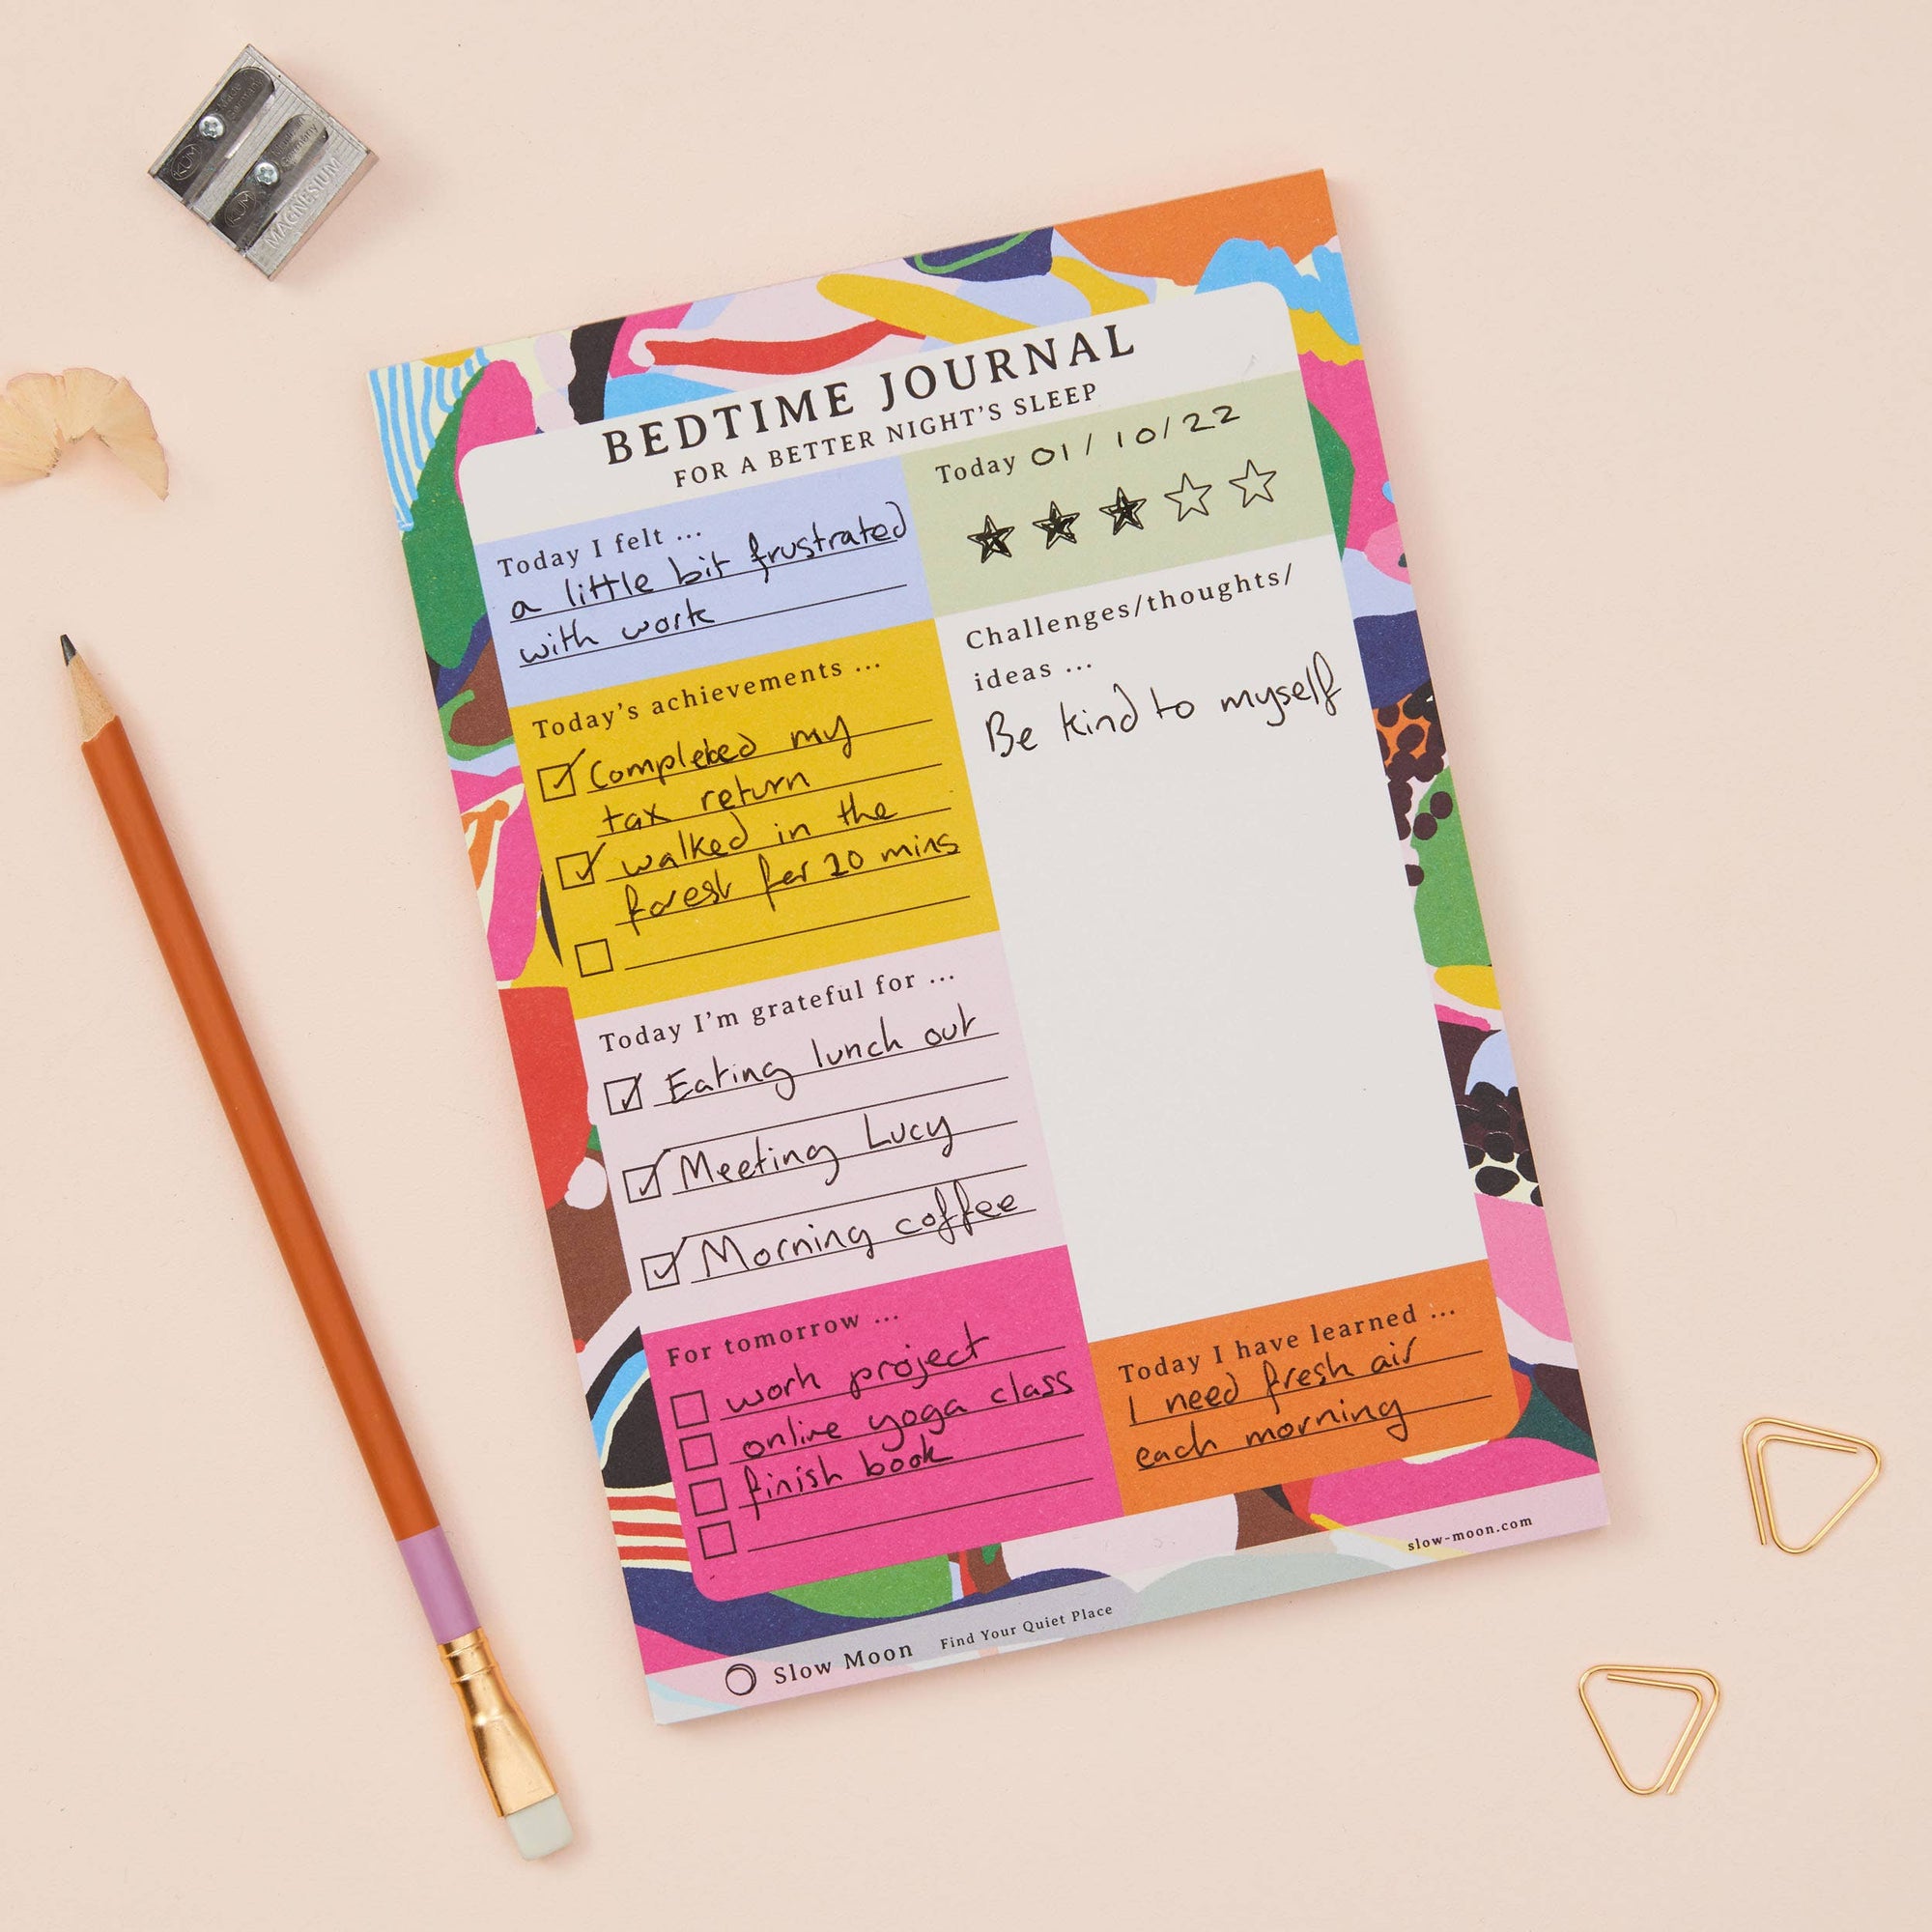 KUM
KUM
Made in
Germany
MAGNESIUM
BEDTIME JOURNAL
FOR A BETTER NIGHT'S SLEEP
Today I felt ...
a little bit frustrated
with work
Today 01/10/22
Today's achievements ...
Completed my
tax return
walked in the
forest for 20 mins
Challenges/thoughts/
ideas ...
Be kind to myself
Today I'm grateful for ...
Eating lunch out
Meeting Lucy
Morning coffee
For tomorrow ...
work project
online yoga class
finish book
Today I have learned ...
I need fresh air
each morning
slow-moon.com
Slow Moon Find Your Quiet Place